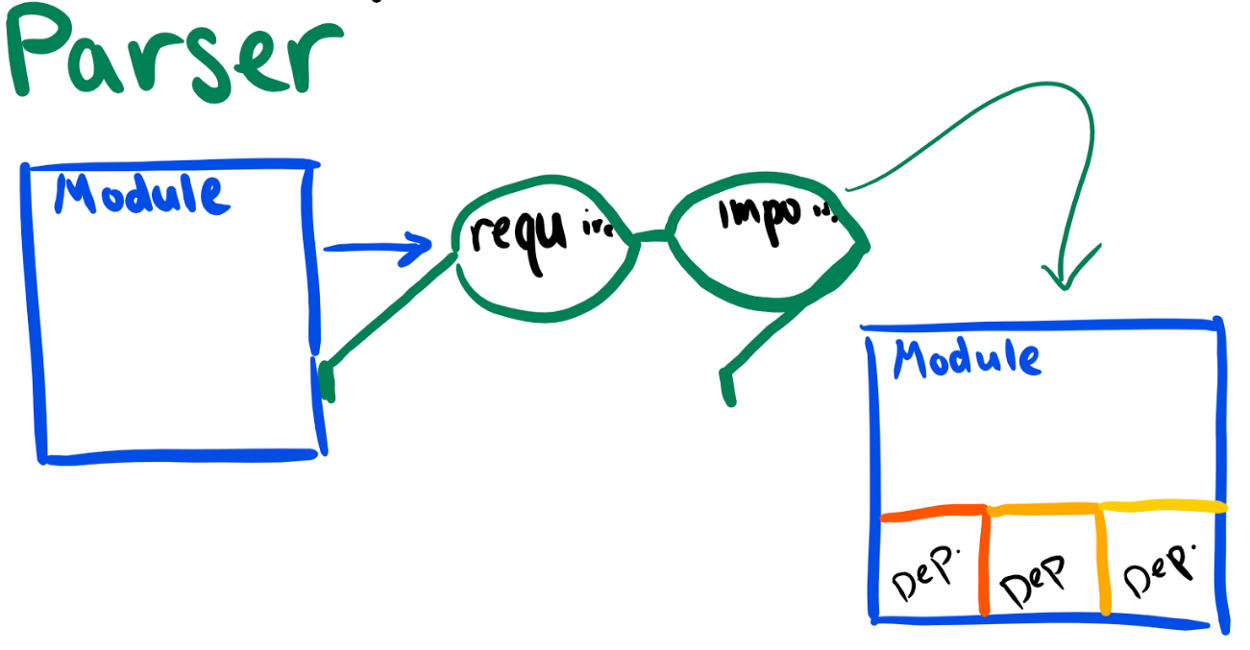 Parser
Module
require
impo
Module
Dep.
Dep
Dep.